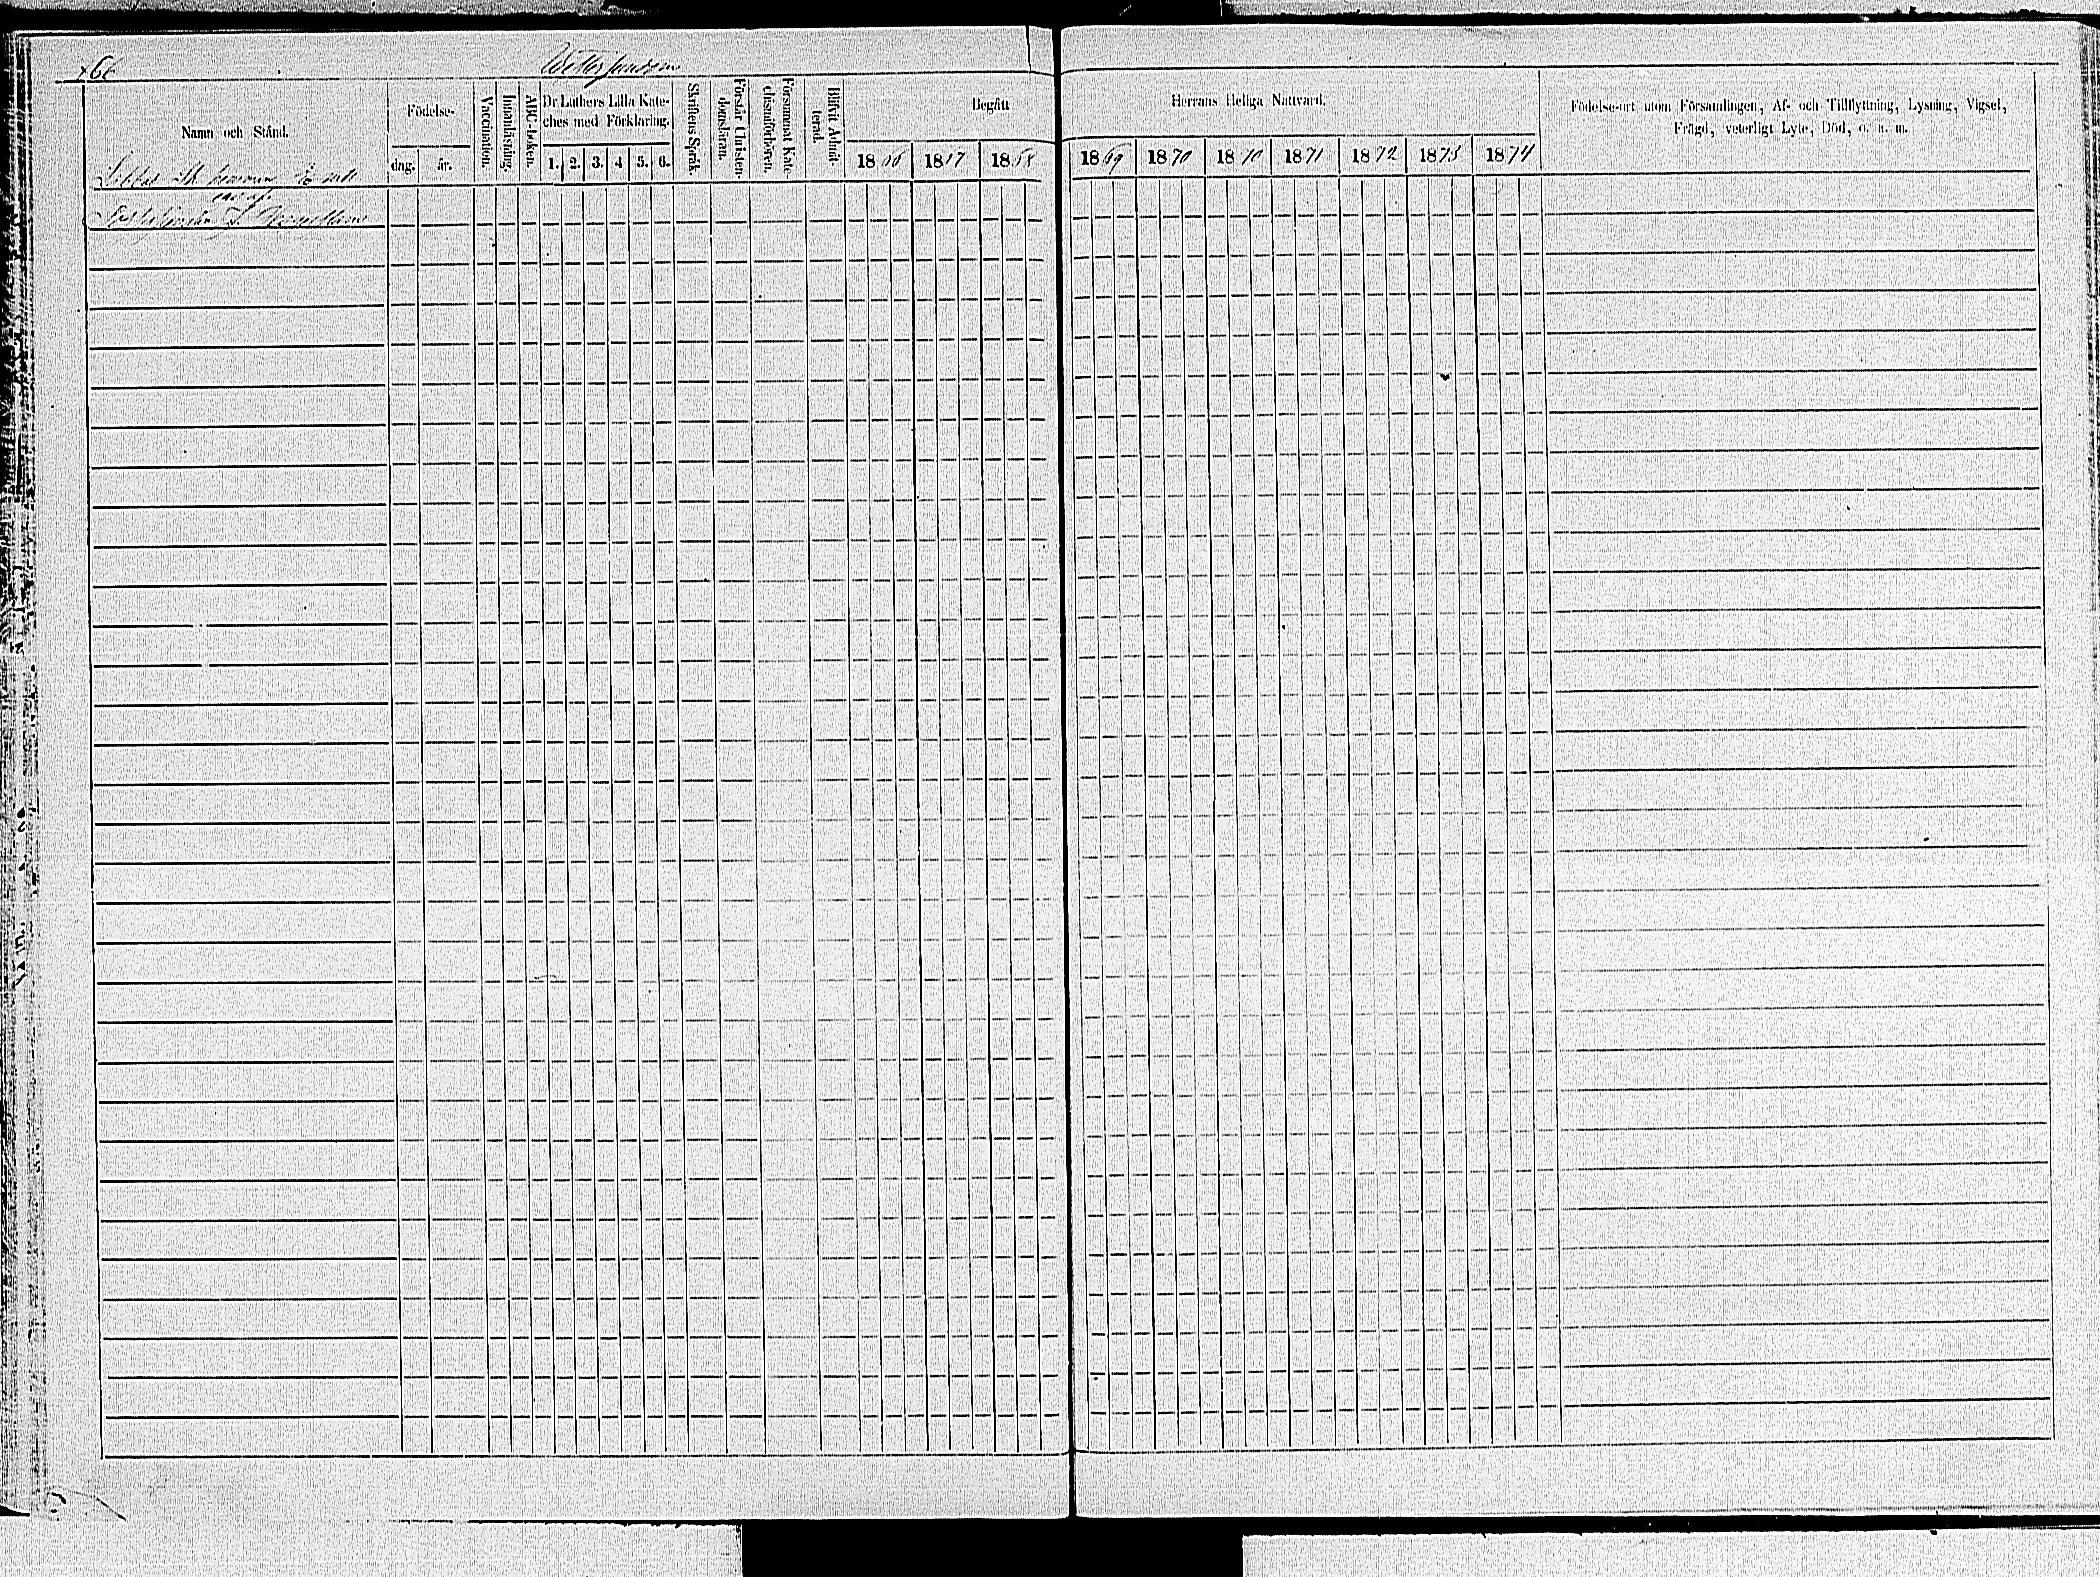 66
Namn och Stånd.
Födelse-
dag. år.
Vaccination.
Innanläsning.
ABC-boken.
Dr Luthers Lilla Kate-
ches med Förklaring.
1. 2. 3. 4 5. 6.
Skriftens Språk.
Förstår Christen-
domsläran.
Försummat Kate-
chismiförhören.
Blifvit Admit-
terad.
Begått
1866 1867 1868
Herrans Heliga Nattvard.
1869 1870 1870 1871 1872 1873 1874
Födelse-ort utom Församlingen, Af- och Tillflyttning, Lysning, Vigsel,
Frägd, veterligt Lyte, Död, o. s. m.